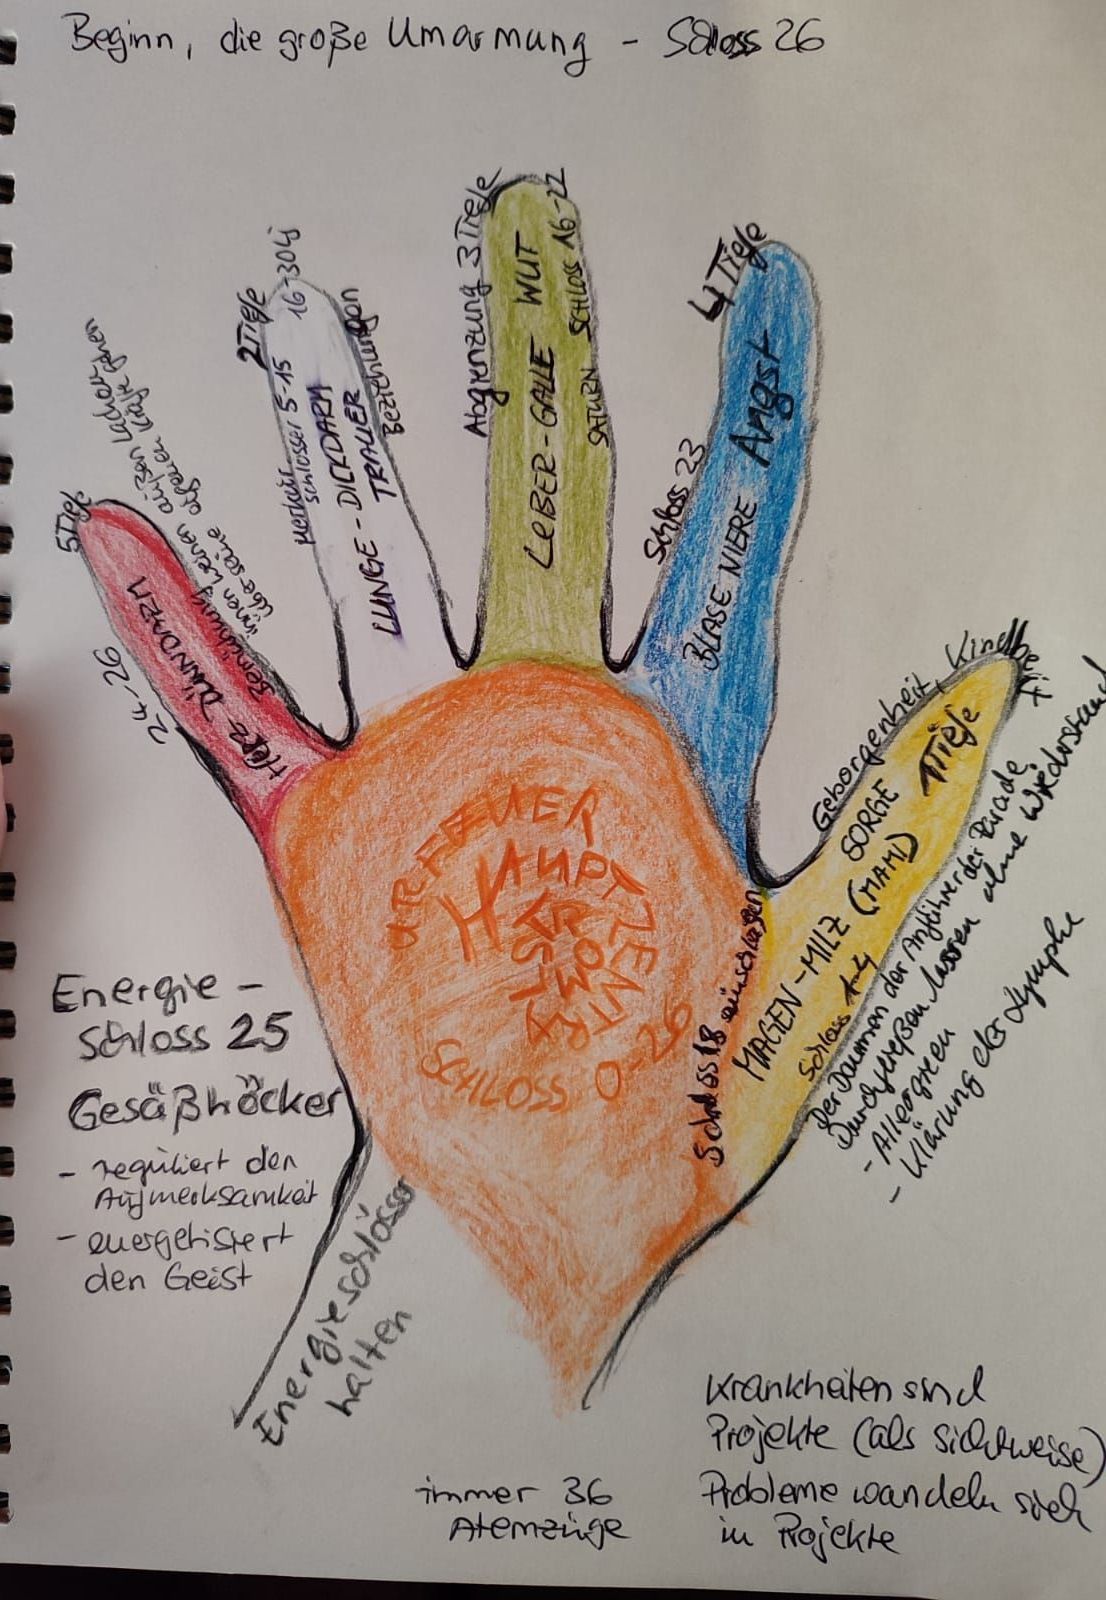 Beginn, die große Umarmung - Schloss 26
5 Tiefe
24-26
HERZ DÜNNDARM
Bemühung
innen weinen außen lachen
über seine
2 Tiefe
16-304j
Merkur
schlösser 5-15
LUNGE - DICKDARM
TRAUER
Beziehungen
Abgrenzung 3 Tiefe
LEBER-GALLE WUT
SATURN SCHLOSS 16-22
4 Tiefe
Schloss 23
BLASE NIERE Angst
Geborgenheit,
1 Tiefe
SORGE
MAGEN-MILZ (MAMI)
Schloss 1-4
Schloss 18 einschliegen
Der Daumen der Anführer der Parade
Durchfließen lassen ohne Wiederstand
- Allergieen
- Klärung der Lymphe
URFEUER
HAUPTZENTRAL
STROM
SCHLOSS 0-26
Energie-
schloss 25
Gesäßhöcker
- reguliert den
Aufmerksamkeit
- energetisiert
den Geist
Energieschlösser
halten
immer 36
Atemzüge
Krankheiten sind
Projekte (als Sichtweise)
Probleme wandeln sich
in Projekte